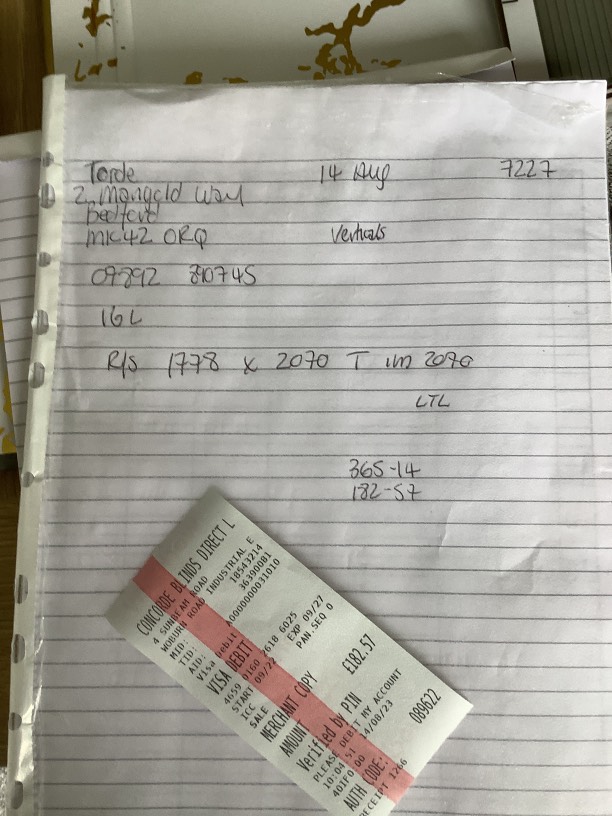 Torde 14 Aug 7227
2, Marigold Way
Bedford
MK42 0RQ Verticals
16 L
R/S 1778 x 2070 T in 2070
LTL
365-14
182-57
CONCORDE BLINDS DIRECT L
4 SUNBEAM ROAD
WOBURN ROAD INDUSTRIAL E
MID: 18543214
TID: 36390081
AID: A0000000031010
Visa Debit
VISA DEBIT
2618 6025
START 09/22 EXP 09/27
ICC PAN.SEQ 0
SALE
MERCHANT COPY
AMOUNT £182.57
Verified by PIN
PLEASE DEBIT MY ACCOUNT
10:04 14/08/23
AUTH CODE: 089622
RECEIPT 1266